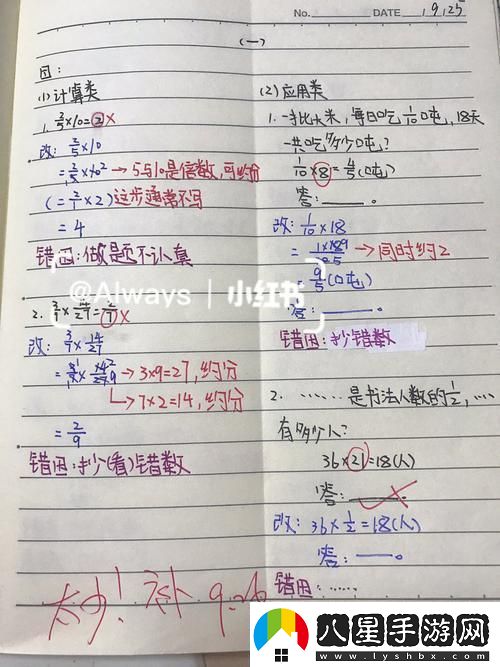 No.
DATE 9,25
(一)
因:
(1)计算类
1. 2/5×10=2×
改: 2/5×10
=2/5×10² →5与10是倍数,可约分
(=2/1×2)这步通常不写
=4
错因:做题不认真
2. 3/7×14/27=7×
改: 3/7×14/27
→3×9=27,约分
→7×2=14,约分
=2/9
错因:抄(看)错数
太少!补 9.26
(2)应用类
1. 一大米,每日吃1/10吨,18天
一共吃多少吨?
1/10×8=4/5(吨)
答:——。
改:1/10×18
→同时约2
=9/5(吨)
答:——。
错因:抄错数
2. ……是书法人数的1/2,…
有多少人?
36×21=18(人)
答:——
改:36×1/2=18(人)
答:——。
错因:……
@Always | 小红书
八星手游网
www.lyshbx.com